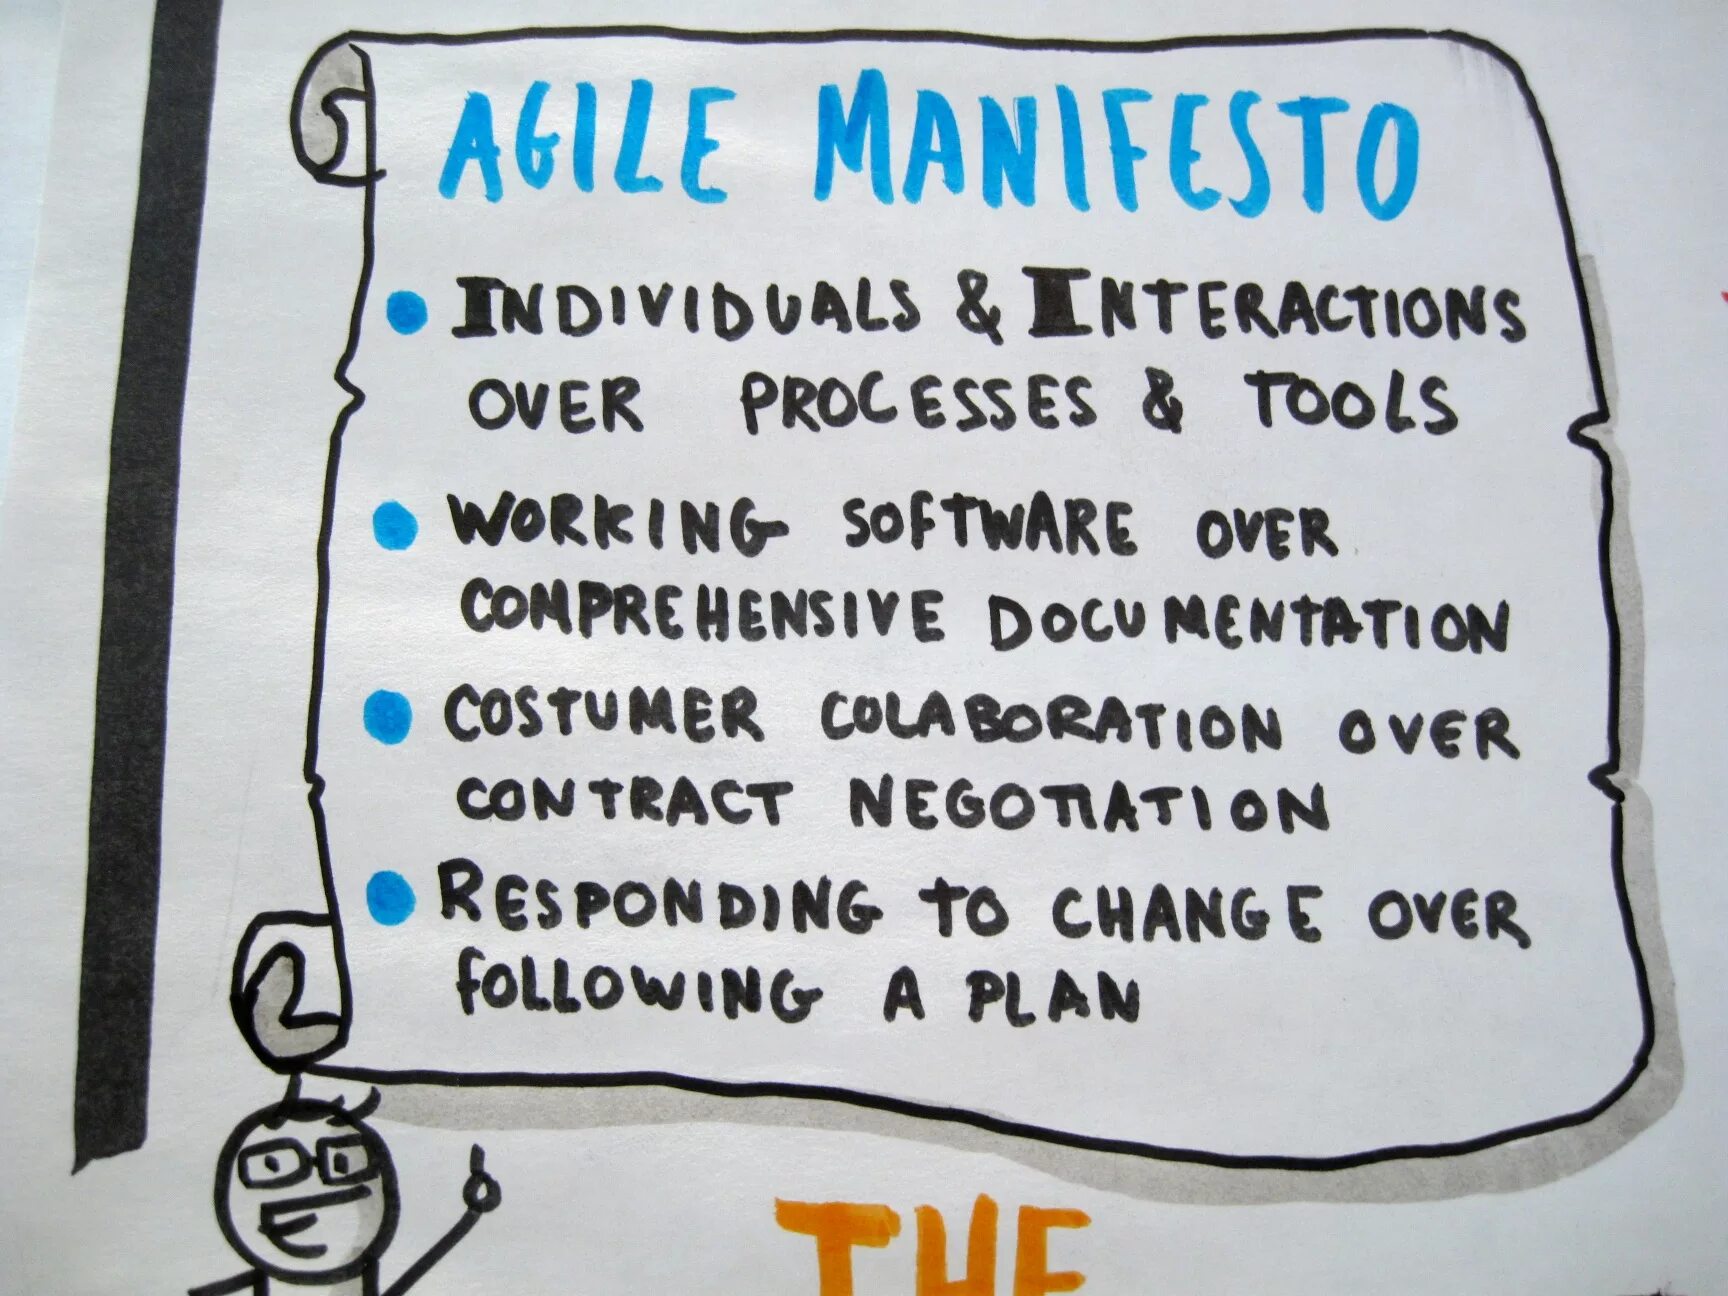 AGILE MANIFESTO
INDIVIDUALS & INTERACTIONS
OVER PROCESSES & TOOLS
WORKING SOFTWARE OVER
COMPREHENSIVE DOCUMENTATION
COSTUMER COLABORATION OVER
CONTRACT NEGOTIATION
RESPONDING TO CHANGE OVER
FOLLOWING A PLAN
THE